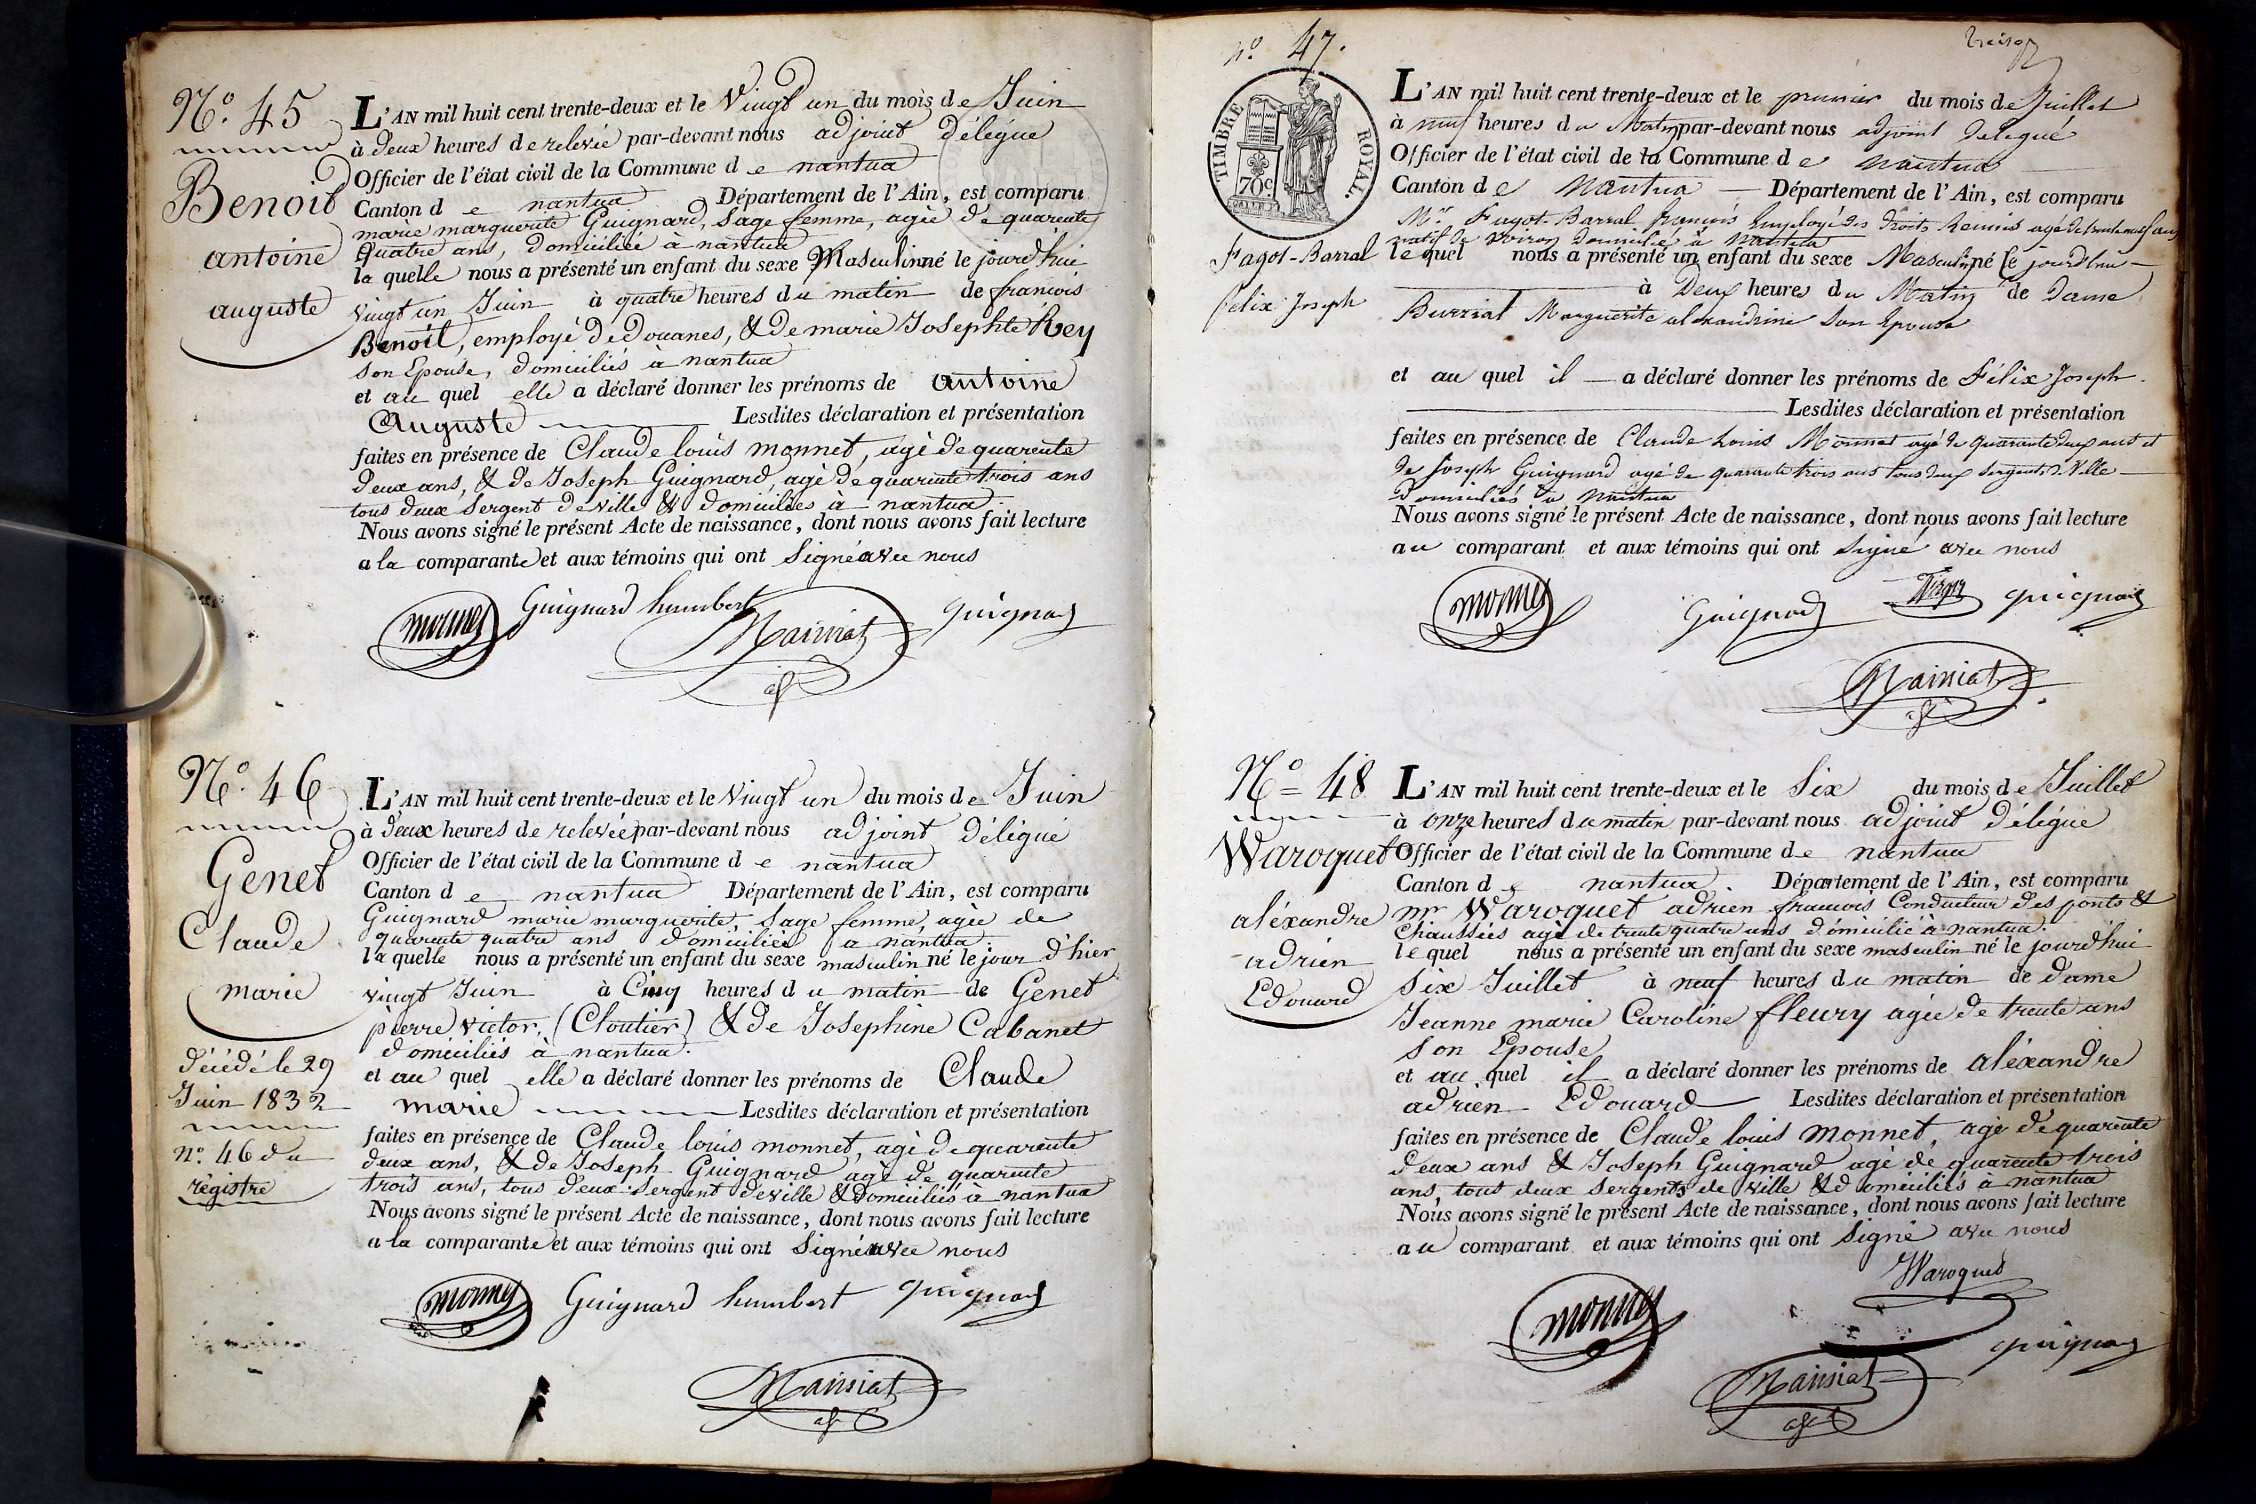 N.° 45
Benoit
antoine
auguste
L'AN mil huit cent trente-deux et le Vingt un du mois de Juin
à deux heures de relevée par-devant nous adjoint délégué
Officier de l'état civil de la Commune de nantua
Canton de nantua Département de l'Ain, est comparu
marie marguerite Guignard, Sage femme, agée de quarente
quatre ans, domiciliée à nantua
la quelle nous a présenté un enfant du sexe Masculin né le jourd'hui
vingt un Juin à quatre heures du matin de francois
Benoit, employé de Douanes, & de marie Josephte Rey
son Epouse, domiciliés à nantua
et au quel elle a déclaré donner les prénoms de antoine
Auguste Lesdites déclaration et présentation
faites en présence de Claude louis monnet, agé de quarente
deux ans, & de Joseph Guignard, agé de quarente trois ans
tous deux sergent de ville & domiciliés à nantua.
Nous avons signé le présent Acte de naissance, dont nous avons fait lecture
a la comparante et aux témoins qui ont Signé avec nous
monnet Guignard humbert Mainiat guignard
N.° 46
Genet
Claude
marie
décédé le 29
Juin 1832
n.° 46 du
régistre
L'AN mil huit cent trente-deux et le Vingt un du mois de Juin
à deux heures de relevée par-devant nous adjoint délégué
Officier de l'état civil de la Commune de nantua
Canton de nantua Département de l'Ain, est comparu
Guignard marie marguerite, Sage femme, agée de
quarente quatre ans domiciliée a nantua
la quelle nous a présenté un enfant du sexe masculin né le jour d'hier
vingt Juin à Cinq heures du matin de Genet
pierre victor, (Cloutier) & de Josephine Cabanet
domiciliés à nantua.
et au quel elle a déclaré donner les prénoms de Claude
marie Lesdites déclaration et présentation
faites en présence de Claude louis monnet, agé de quarente
deux ans, & de Joseph Guignard agé de quarente
trois ans, tous deux Sergent de ville & Domiciliés à nantua
Nous avons signé le présent Acte de naissance, dont nous avons fait lecture
a la comparante et aux témoins qui ont Signé avec nous
monnet Guignard humbert guignard
Mainiat
N.° 47.
TIMBRE ROYAL.
70c
Fagot-Barral
felix Joseph
L'AN mil huit cent trente-deux et le premier du mois de Juillet
à neuf heures du Matin par-devant nous adjoint délégué
Officier de l'état civil de la Commune de Nantua
Canton de Nantua Département de l'Ain, est comparu
Mr. Fagot-Barral françois Employé des Droits Réunis agé de trente neuf ans
natif de Voiron domicilié à Nantua
lequel nous a présenté un enfant du sexe Masculin né le jourd'hui
à Deux heures du Matin de Dame
Burriat Marguerite alexandrine Son Epouse
et au quel il a déclaré donner les prénoms de Félix Joseph.
Lesdites déclaration et présentation
faites en présence de Claude Louis Monnet agé de quarante deux ans et
de Joseph Guignard agé de quarante trois ans tous deux Sergents de Ville
Domiciliés à Nantua
Nous avons signé le présent Acte de naissance, dont nous avons fait lecture
au comparant et aux témoins qui ont Signé avec nous
monnet Guignard guignard
Mainiat
N.° = 48
Waroquet
aléxandre
adrien
Edouard
L'AN mil huit cent trente-deux et le Six du mois de Juillet
à onze heures du matin par-devant nous adjoint délégué
Officier de l'état civil de la Commune de nantua
Canton de nantua. Département de l'Ain, est comparu
mr Waroquet adrien francois Conducteur des ponts &
Chaussées agé de trente quatre ans domicilié à nantua.
lequel nous a présenté un enfant du sexe masculin né le jourd'hui
Six Juillet à neuf heures du matin de dame
Jeanne marie Caroline fleury agée de trente ans
Son Epouse
et au quel il a déclaré donner les prénoms de aléxandre
adrien Edouard Lesdites déclaration et présentation
faites en présence de Claude louis monnet, agé de quarente
deux ans & Joseph Guignard agé de quarente trois
ans, tous deux sergents de ville & domiciliés à nantua
Nous avons signé le présent Acte de naissance, dont nous avons fait lecture
au comparant et aux témoins qui ont Signé avec nous
Waroquet
monnet guignard
Mainiat